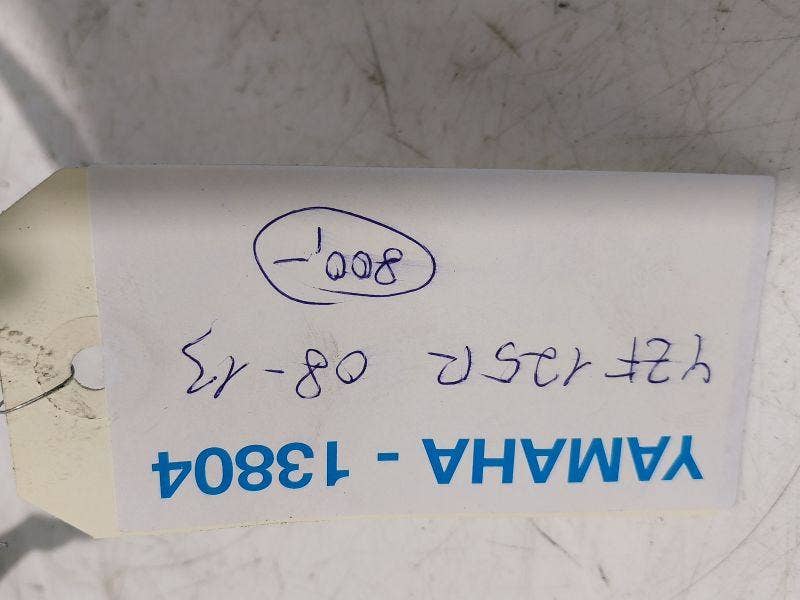 YAMAHA - 13804
YZF 125R 08-13
800,-